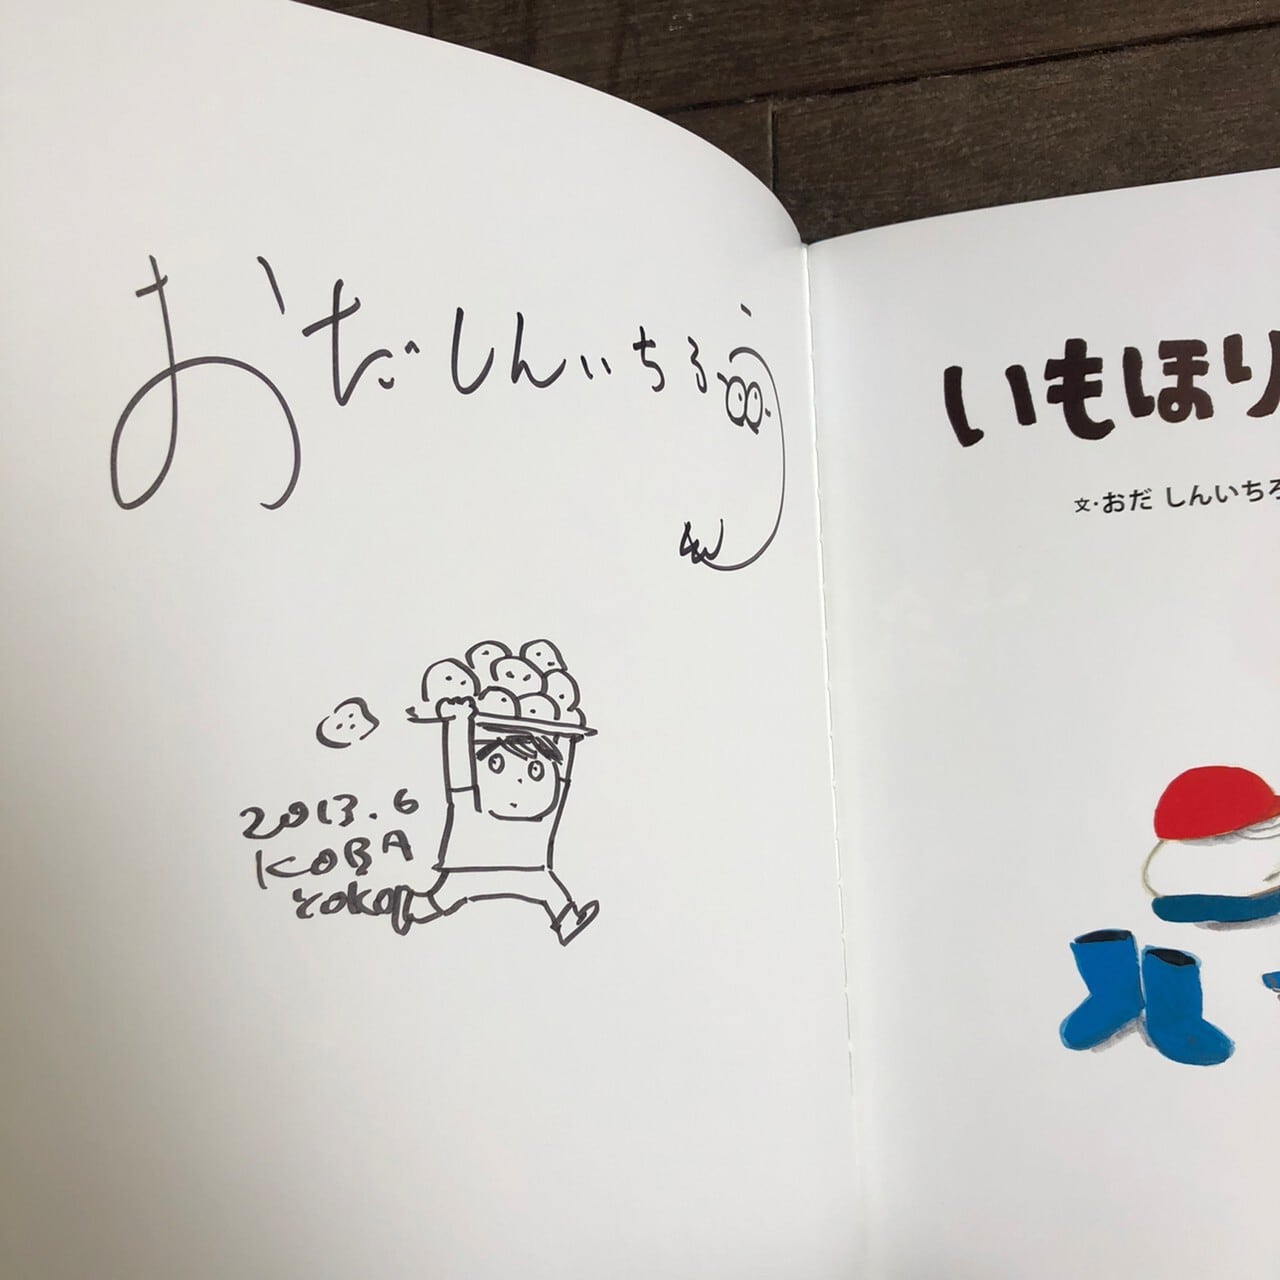 おだしんいちろう
2013.6
KOBA
YOKO
いもほり
文・おだ しんいちろ